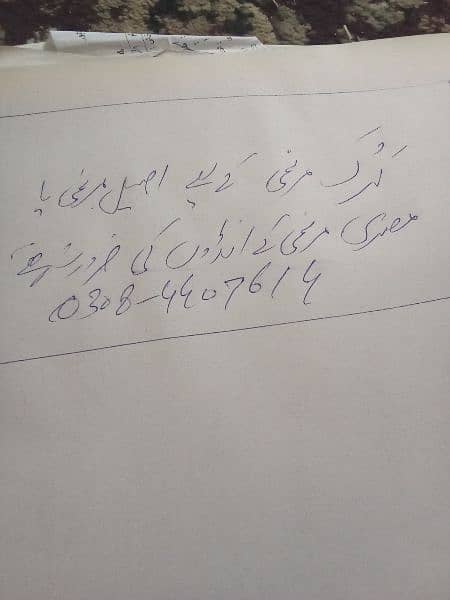 کڑک مرغی کے لیے اصیل مرغی یا
مصری مرغی کے انڈوں کی ضرورت ہے
0308-4407614